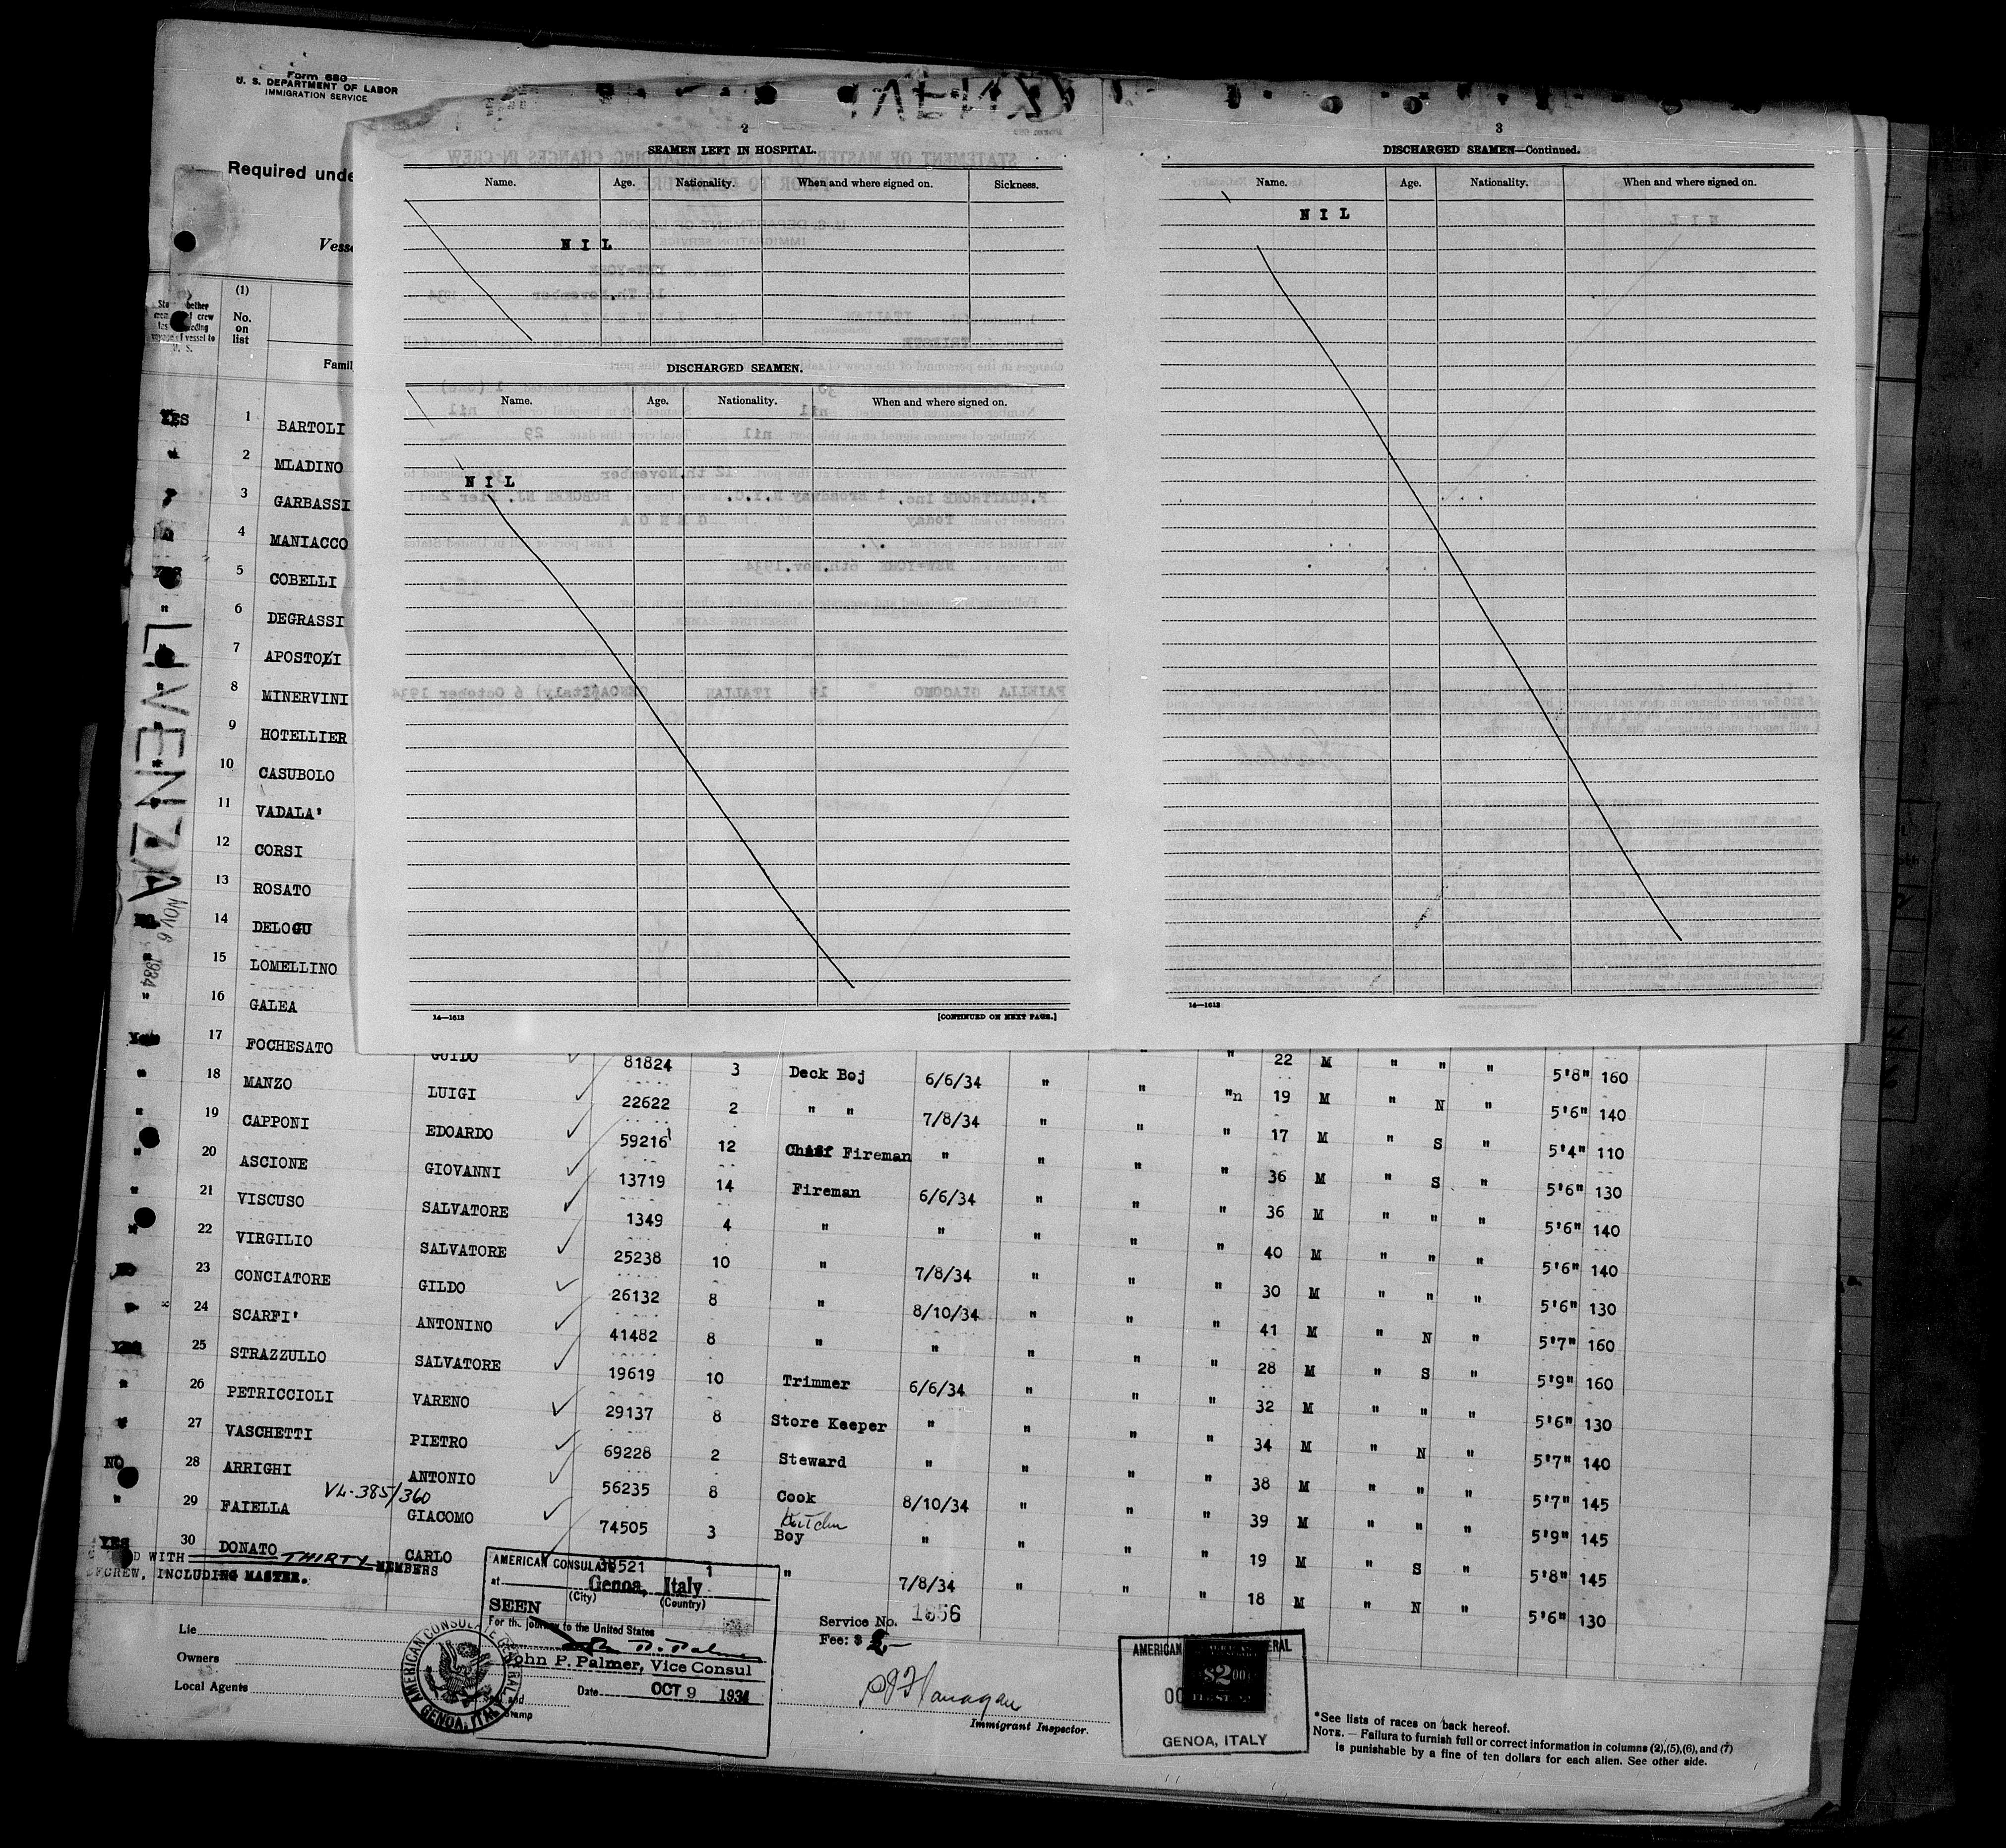 Form 680
U. S. DEPARTMENT OF LABOR
IMMIGRATION SERVICE
Required unde
Vesse
(1)
No. on list
Famil
2
SEAMEN LEFT IN HOSPITAL.
Name. Age. Nationality. When and where signed on. Sickness.
N I L
DISCHARGED SEAMEN.
Name. Age. Nationality. When and where signed on.
N I L
14—1613 [CONTINUED ON NEXT PAGE.]
3
DISCHARGED SEAMEN—Continued.
Name. Age. Nationality. When and where signed on.
N I L
14—1613
LIVENZA NOV 6 1934
YES 1 BARTOLI
2 MLADINO
3 GARBASSI
4 MANIACCO
5 COBELLI
" 6 DEGRASSI
7 APOSTOLI
" 8 MINERVINI
" 9 HOTELLIER
10 CASUBOLO
11 VADALA'
12 CORSI
13 ROSATO
14 DELOGU
" 15 LOMELLINO
" 16 GALEA
17 FOCHESATO GUIDO 81824 3 Deck Boj 6/6/34 " " " 22 M " " " 5'8" 160
" 18 MANZO LUIGI 22622 2 " " 7/8/34 " " "n 19 M " N " 5'6" 140
" 19 CAPPONI EDOARDO 59216 12 Chief Fireman " " " " 17 M " S " 5'4" 110
" 20 ASCIONE GIOVANNI 13719 14 Fireman 6/6/34 " " " 36 M " S " 5'6" 130
" 21 VISCUSO SALVATORE 1349 4 " " " " " 36 M " " " 5'6" 140
" 22 VIRGILIO SALVATORE 25238 10 " 7/8/34 " " " 40 M " " " 5'6" 140
23 CONCIATORE GILDO 26132 8 " 8/10/34 " " " 30 M " " " 5'6" 130
" 24 SCARFI' ANTONINO 41482 8 " " " " " 41 M " N " 5'7" 160
YES 25 STRAZZULLO SALVATORE 19619 10 Trimmer 6/6/34 " " " 28 M " S " 5'9" 160
" 26 PETRICCIOLI VARENO 29137 8 Store Keeper " " " " 32 M " " " 5'6" 130
" 27 VASCHETTI PIETRO 69228 2 Steward " " " " 34 M " N " 5'7" 140
NO 28 ARRIGHI ANTONIO 56235 8 Cook 8/10/34 " " " 38 M " " " 5'7" 145
VL-385/360
" 29 FAIELLA GIACOMO 74505 3 Kitchen Boy " " " " 39 M " " " 5'9" 145
YES 30 DONATO CARLO 38521 1 " 7/8/34 " " " 19 M " S " 5'8" 145
18 M " N " 5'6" 130
WITH THIRTY MEMBERS
CREW, INCLUDING MASTER.
Lie
Owners
Local Agents
AMERICAN CONSULATE
at Genoa, Italy
(City) (Country)
SEEN
For the journey to the United States
John P. Palmer, Vice Consul
Date OCT 9 1934
Seal and Stamp
AMERICAN CONSULATE GENERAL
GENOA, ITALY
Service No. 1656
Fee: $ 2-
PJ Flanagan
Immigrant Inspector.
AMERICAN GENERAL
$2.00
GENOA, ITALY
*See lists of races on back hereof.
NOTE.—Failura to furnish full or correct information in columns (2),(5),(6), and (7)
is punishable by a fine of ten dollars for each alien. See other side.